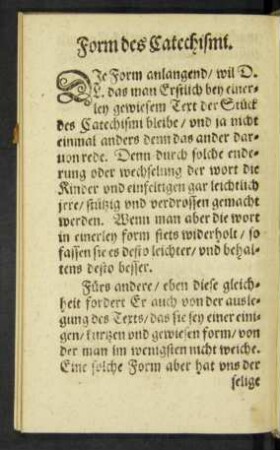 Form des Catechismi.
DJe Form anlangend/ wil D.
L. das man Erstlich bey einer-
ley gewiesem Text der Stück
des Catechismi bleibe/ vnd ja nicht
einmal anders denn das ander dar-
uon rede. Denn durch solche ende-
rung oder wechselung der wort die
Kinder vnd einfeltigen gar leichtlich
jrre/ stützig vnd verdrossen gemacht
werden. Wenn man aber die wort
in einerley form stets widerholt/ so
fassen sie es desto leichter/ vnd behal-
tens desto besser.
Fürs andere/ eben diese gleich-
heit fordert Er auch von der ausle-
gung des Texts/ das sie sey einer eini-
gen/ kurtzen vnd gewiesen form/ von
der man im wenigsten nicht weiche.
Eine solche Form aber hat vns der
selige